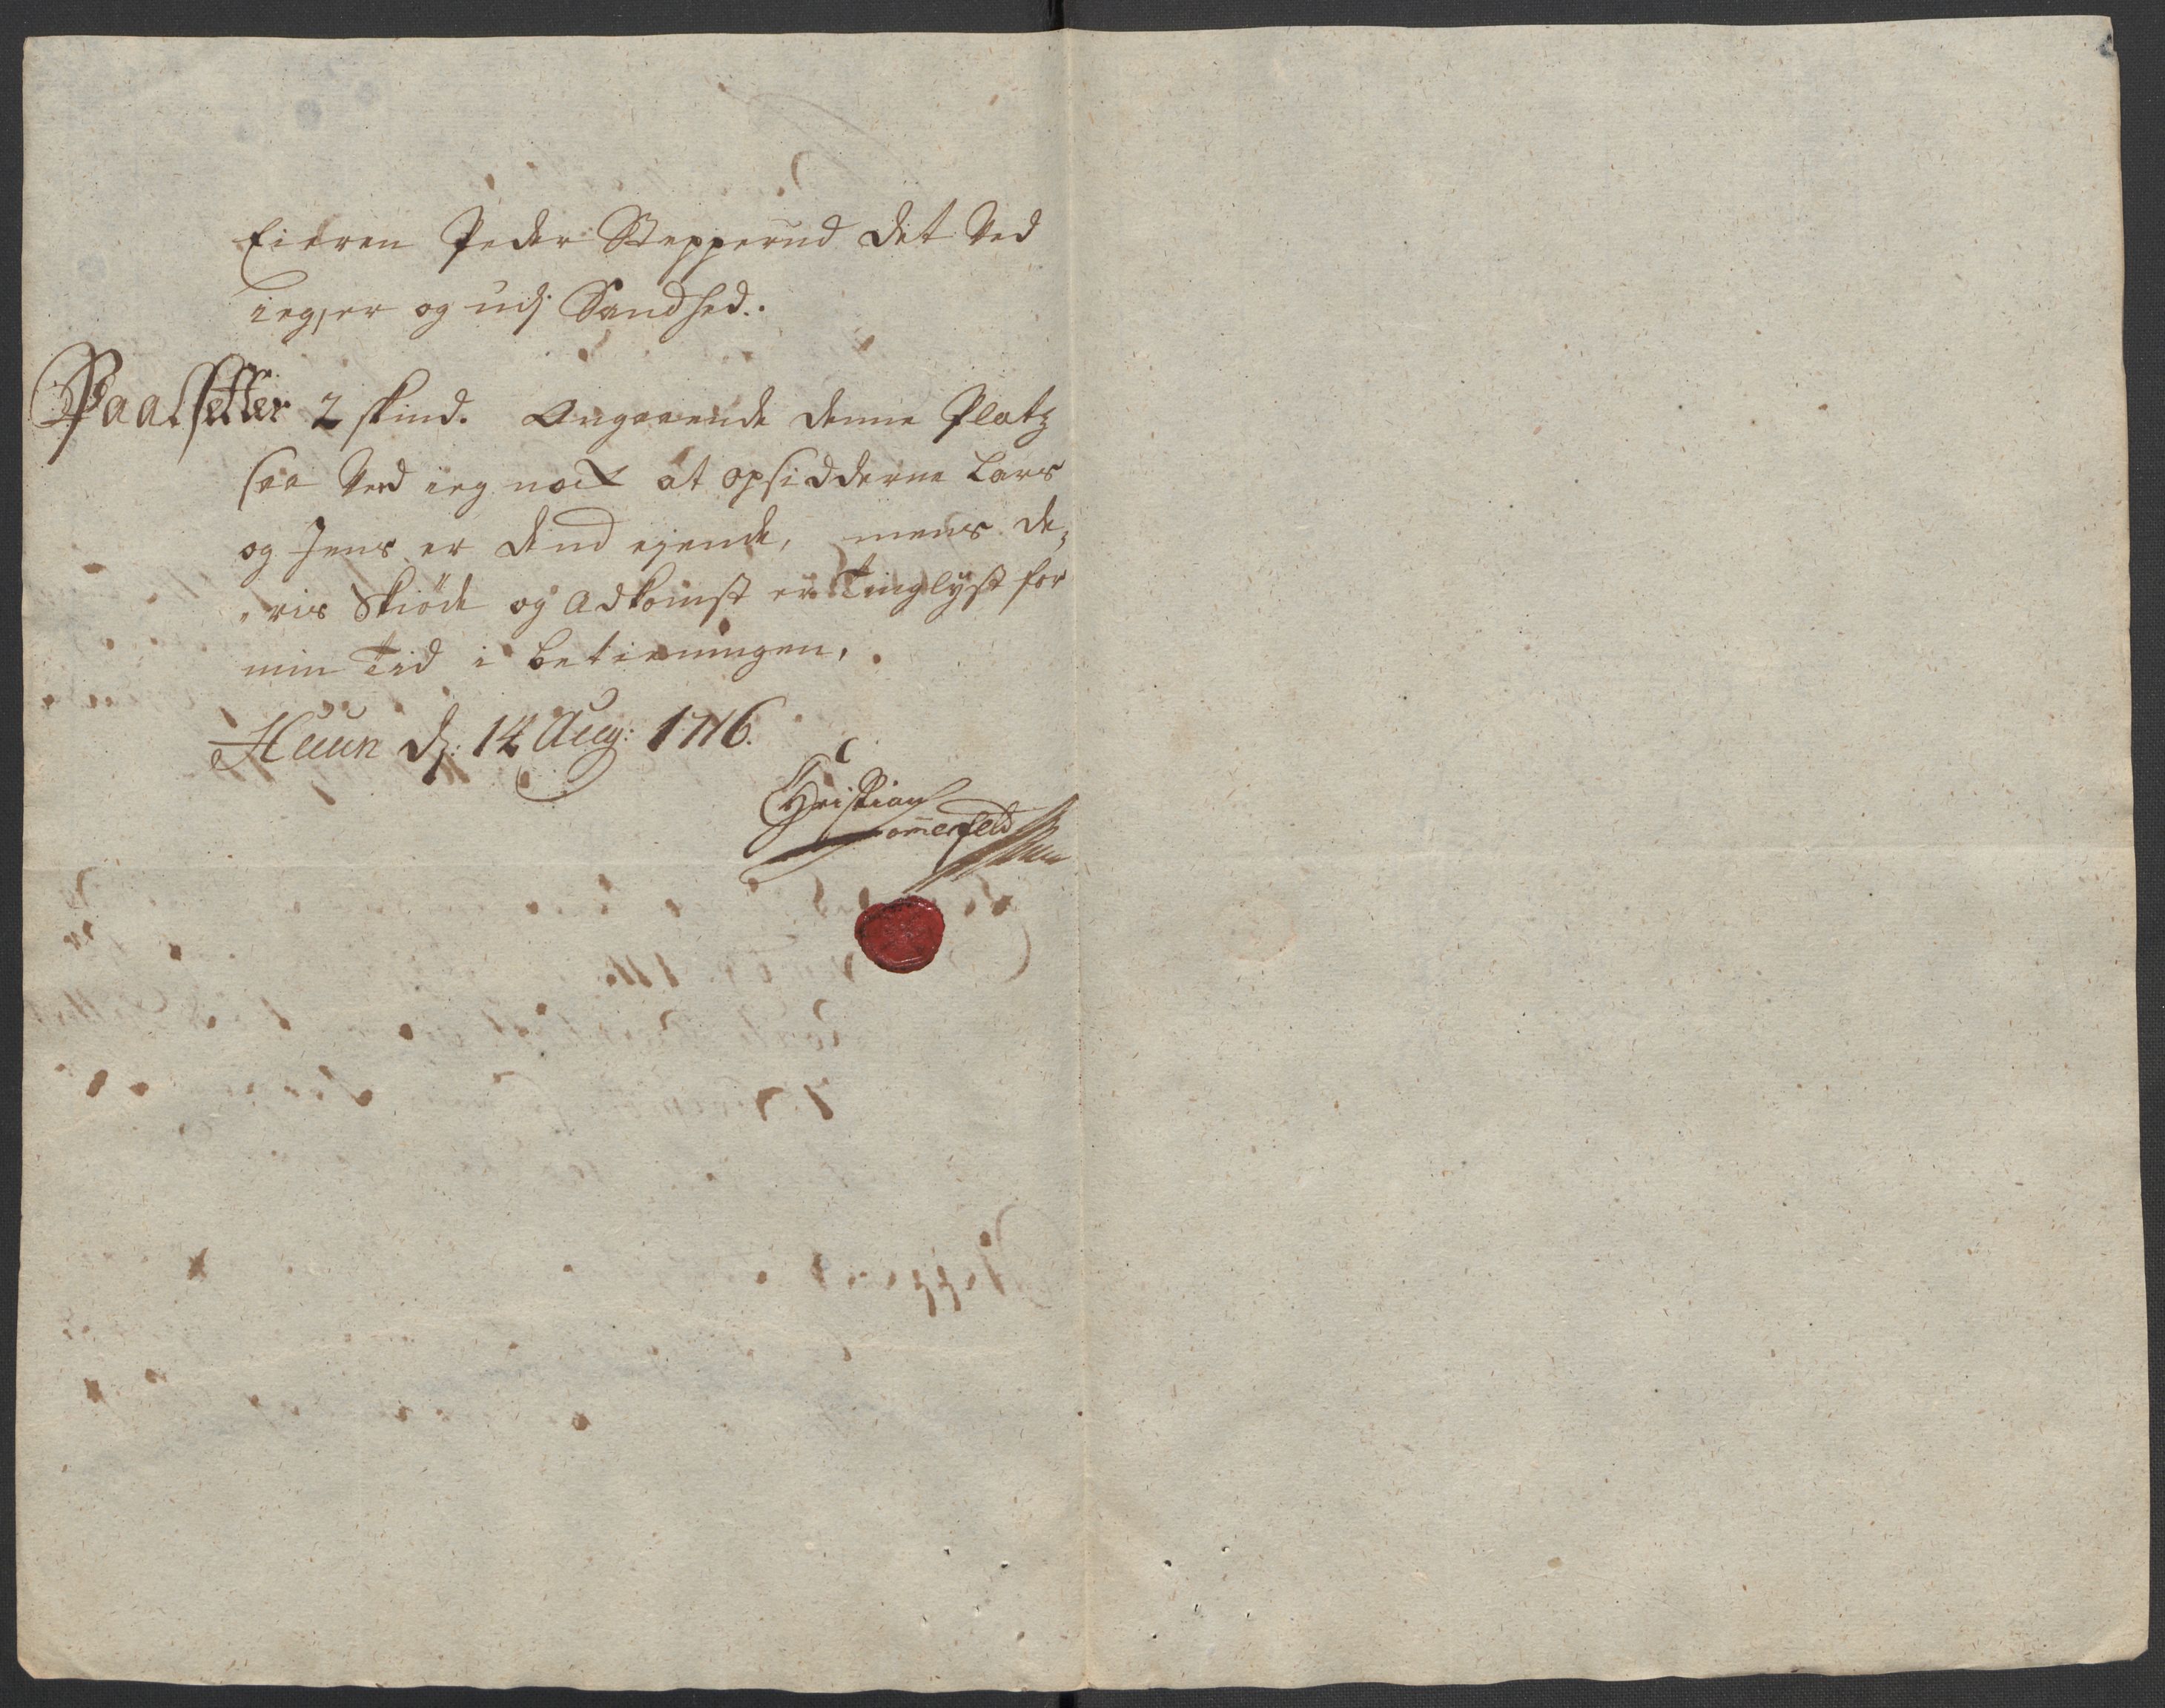 Eieren Peder Stepperud det Ved
ieg, er og udj Sandhed.
Paalsetter 2 skind. Angaaende denne Platz
saa Ved ieg nock at opsidderne Lars
og Jens er dend ejende, mens de,
,ris Skiöde og Adkomst er Tinglyst for
min Tid i betieningen,
Huun dj: 14 Aug: 1716.
Christian
Sommerfeld